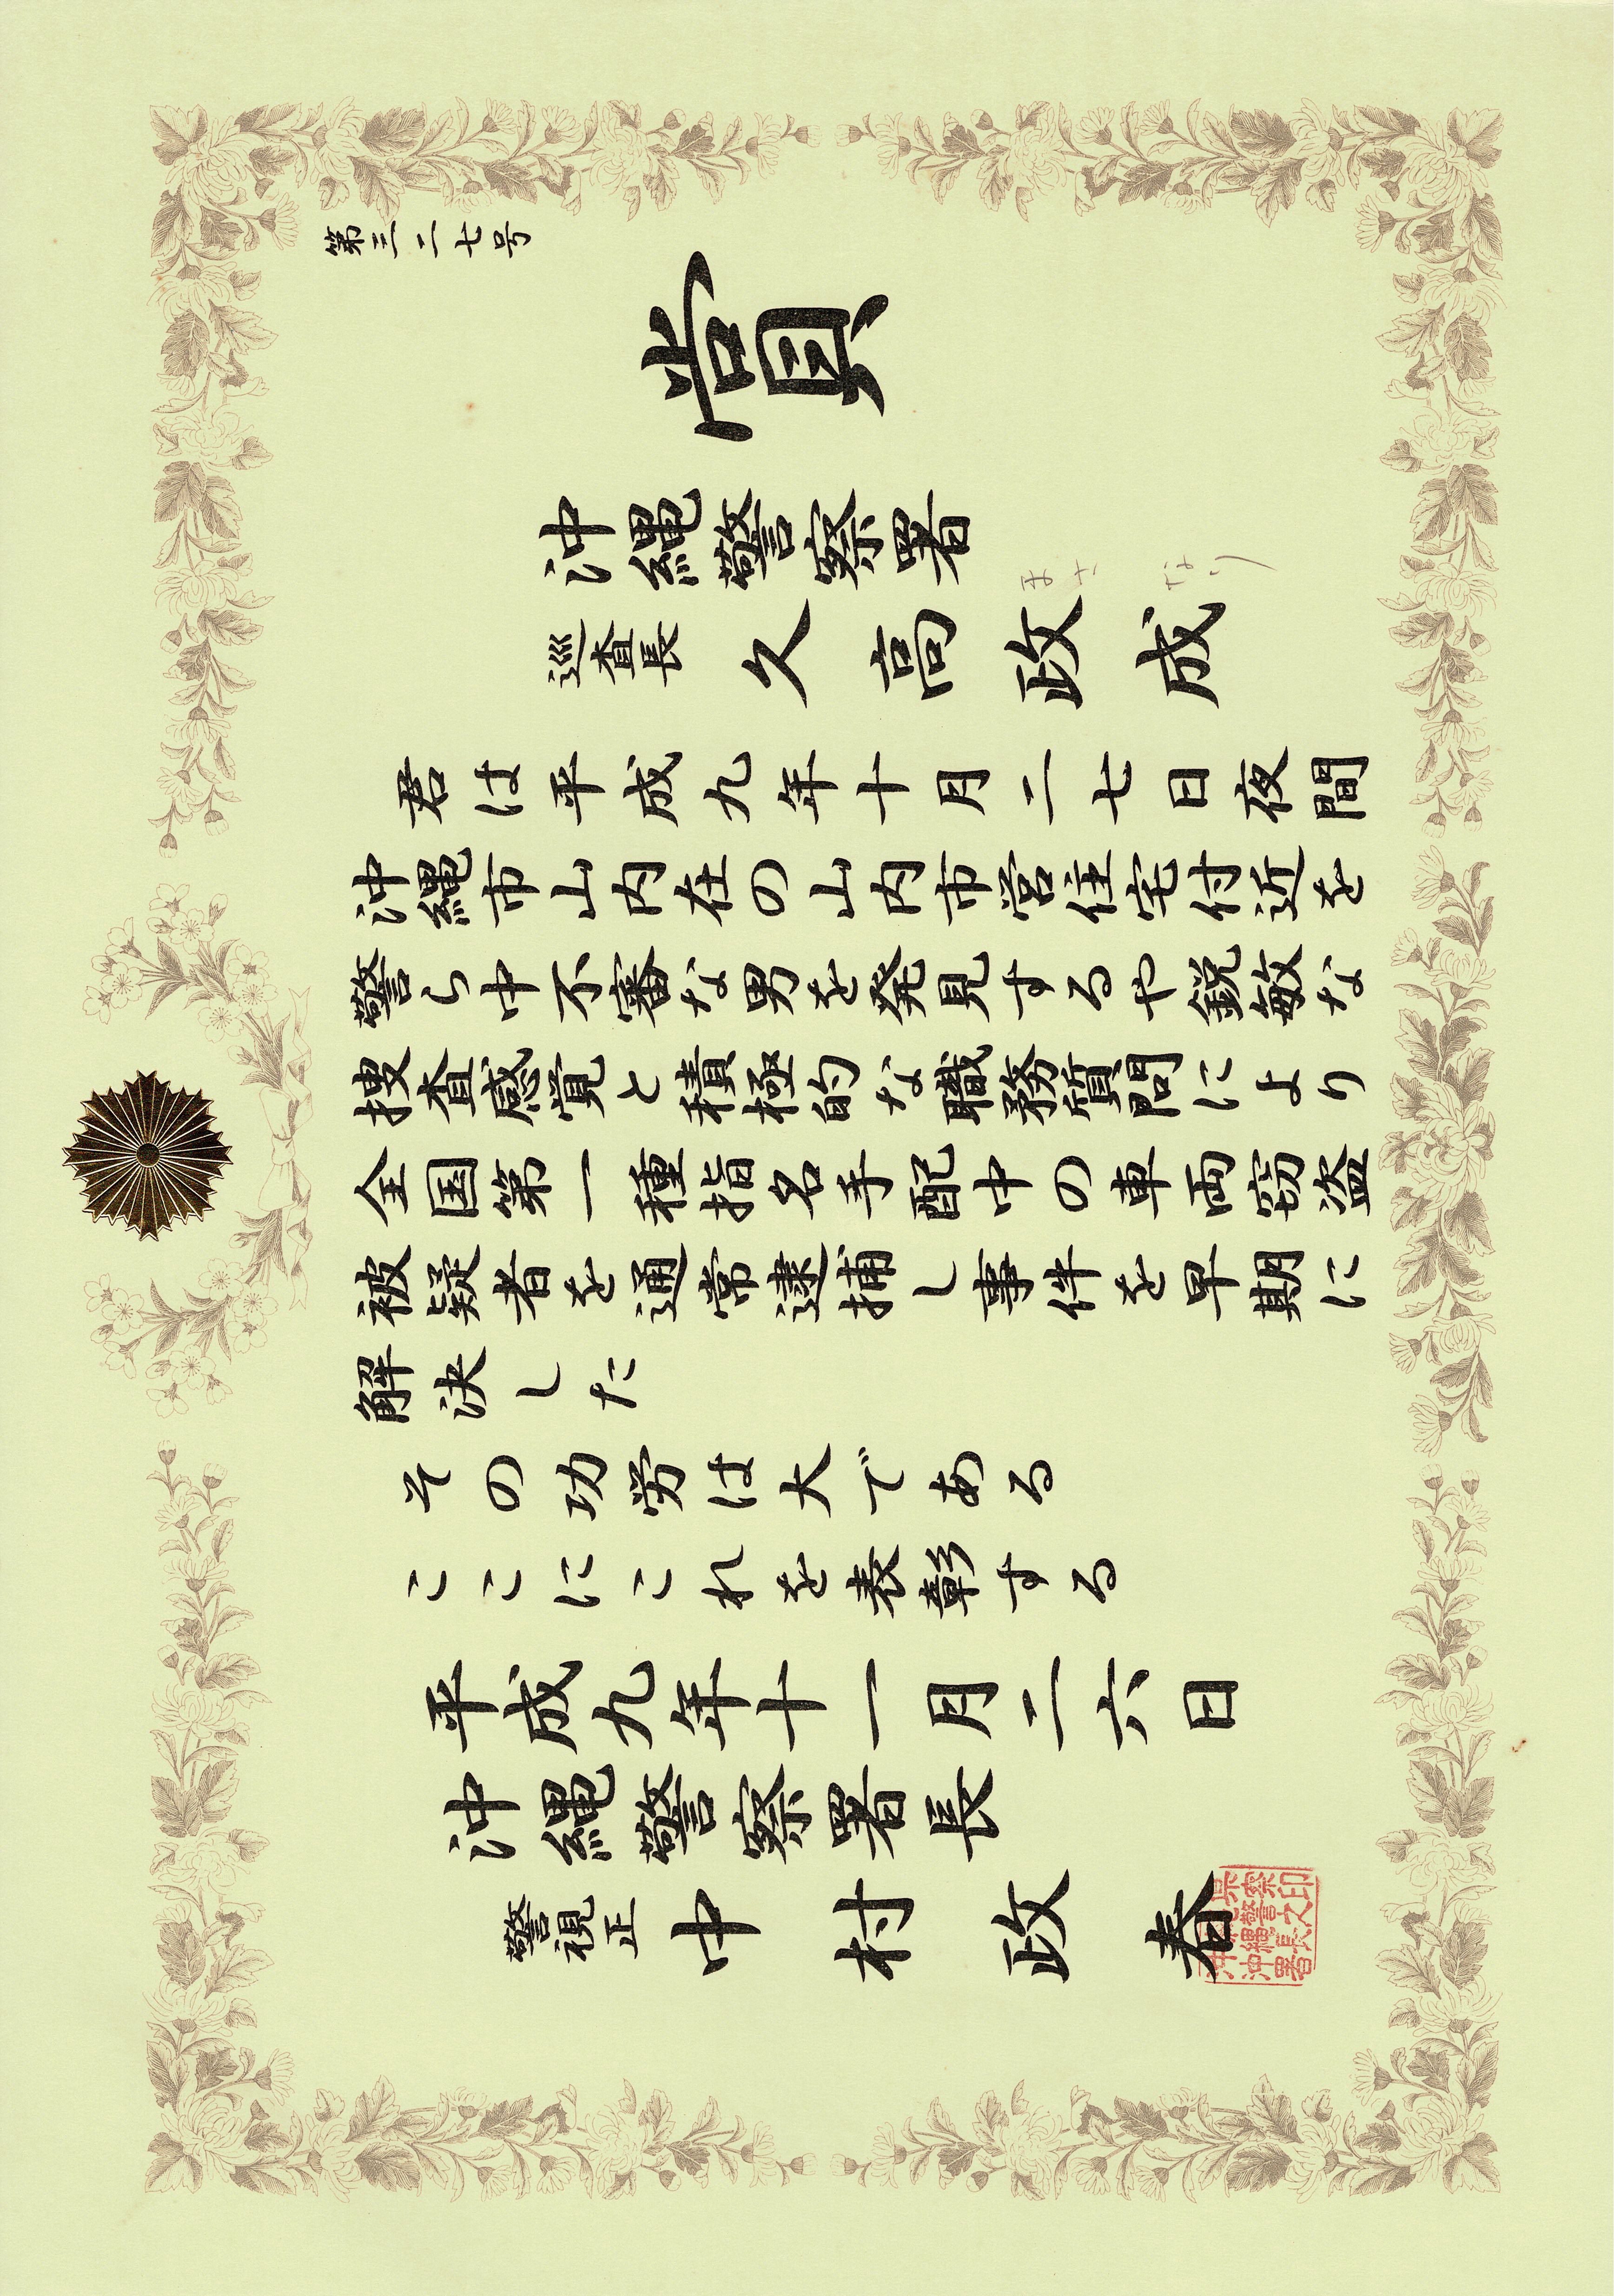 第三二七号
賞
沖縄警察署
巡査長 久高政成
まさ なり
君は平成九年十月二七日夜間
沖縄市山内在の山内市営住宅付近を
警ら中不審な男を発見するや鋭敏な
捜査感覚と積極的な職務質問により
全国第一種指名手配中の車両窃盗
被疑者を通常逮捕し事件を早期に
解決した
その功労は大である
ここにこれを表彰する
平成九年十一月二六日
沖縄警察署長
警視正 中村政春